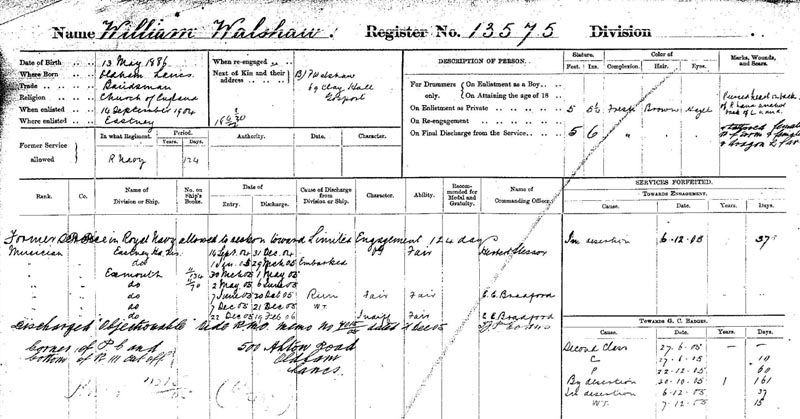 Name William Walshaw. Register No. 13575 Division
Date of Birth 13 May 1886
Where Born Oldham Lancs
Trade Bandsman
Religion Church of England
When enlisted 16 September 1904
Where enlisted Eastney
When re-engaged
Next of Kin and their address
69 Clay Hall
Gosport
DESCRIPTION OF PERSON.
Stature. Feet. Ins.
Color of Complexion. Hair. Eyes.
Marks, Wounds, and Scars.
For Drummers only.
On Enlistment as a Boy
On Attaining the age of 18
On Enlistment as Private 5 Fresh Brown Hazel
On Re-engagement
On Final Discharge from the Service 5 6 " " "
Former Service allowed
In what Regiment. Period. Years. Days. Authority. Date of Discharge. Cause of Discharge. Character.
R Navy 124
Rank. Co. Name of Division or Ship. No. on Ship's Books. Date of Entry. Discharge. Cause of Discharge from Division or Ship. Character. Ability. Recommended for Medal and Gratuity. Name of Commanding Officer.
Former Service in Royal Navy allowed to reckon toward Limited Engagement 124 days
Musician 16 Sept. 04 31 Dec. 04
do 1 Jan. 05 29 Mch 05 Embarked
" Exmouth 30 Mch 05 1 May 05
" do 2 May 05 6 June 05
" do 7 June 05 20 Oct 05 Run Fair Fair E. E. Bradford
" do 7 Dec 05 21 Dec 05 W.T.
" do 22 Dec 05 19 Feb 06 Indiff Fair E E Bradford
Discharged "Objectionable"
Corners of P.C and
bottom of R III cut off
500 Ashton Road
Oldham
Lancs.
SERVICES FORFEITED.
TOWARDS ENGAGEMENT.
Cause. Date. Years. Days.
In desertion 6-12-05 37
TOWARDS G. C. BADGES.
Cause. Date. Years. Days.
Second Class 27-6-05 — —
C 27-6-05 10
P 22-12-05 60
By desertion 20-10-05 1 161
In desertion 6-12-05 37
W.T. 7-12-05 15